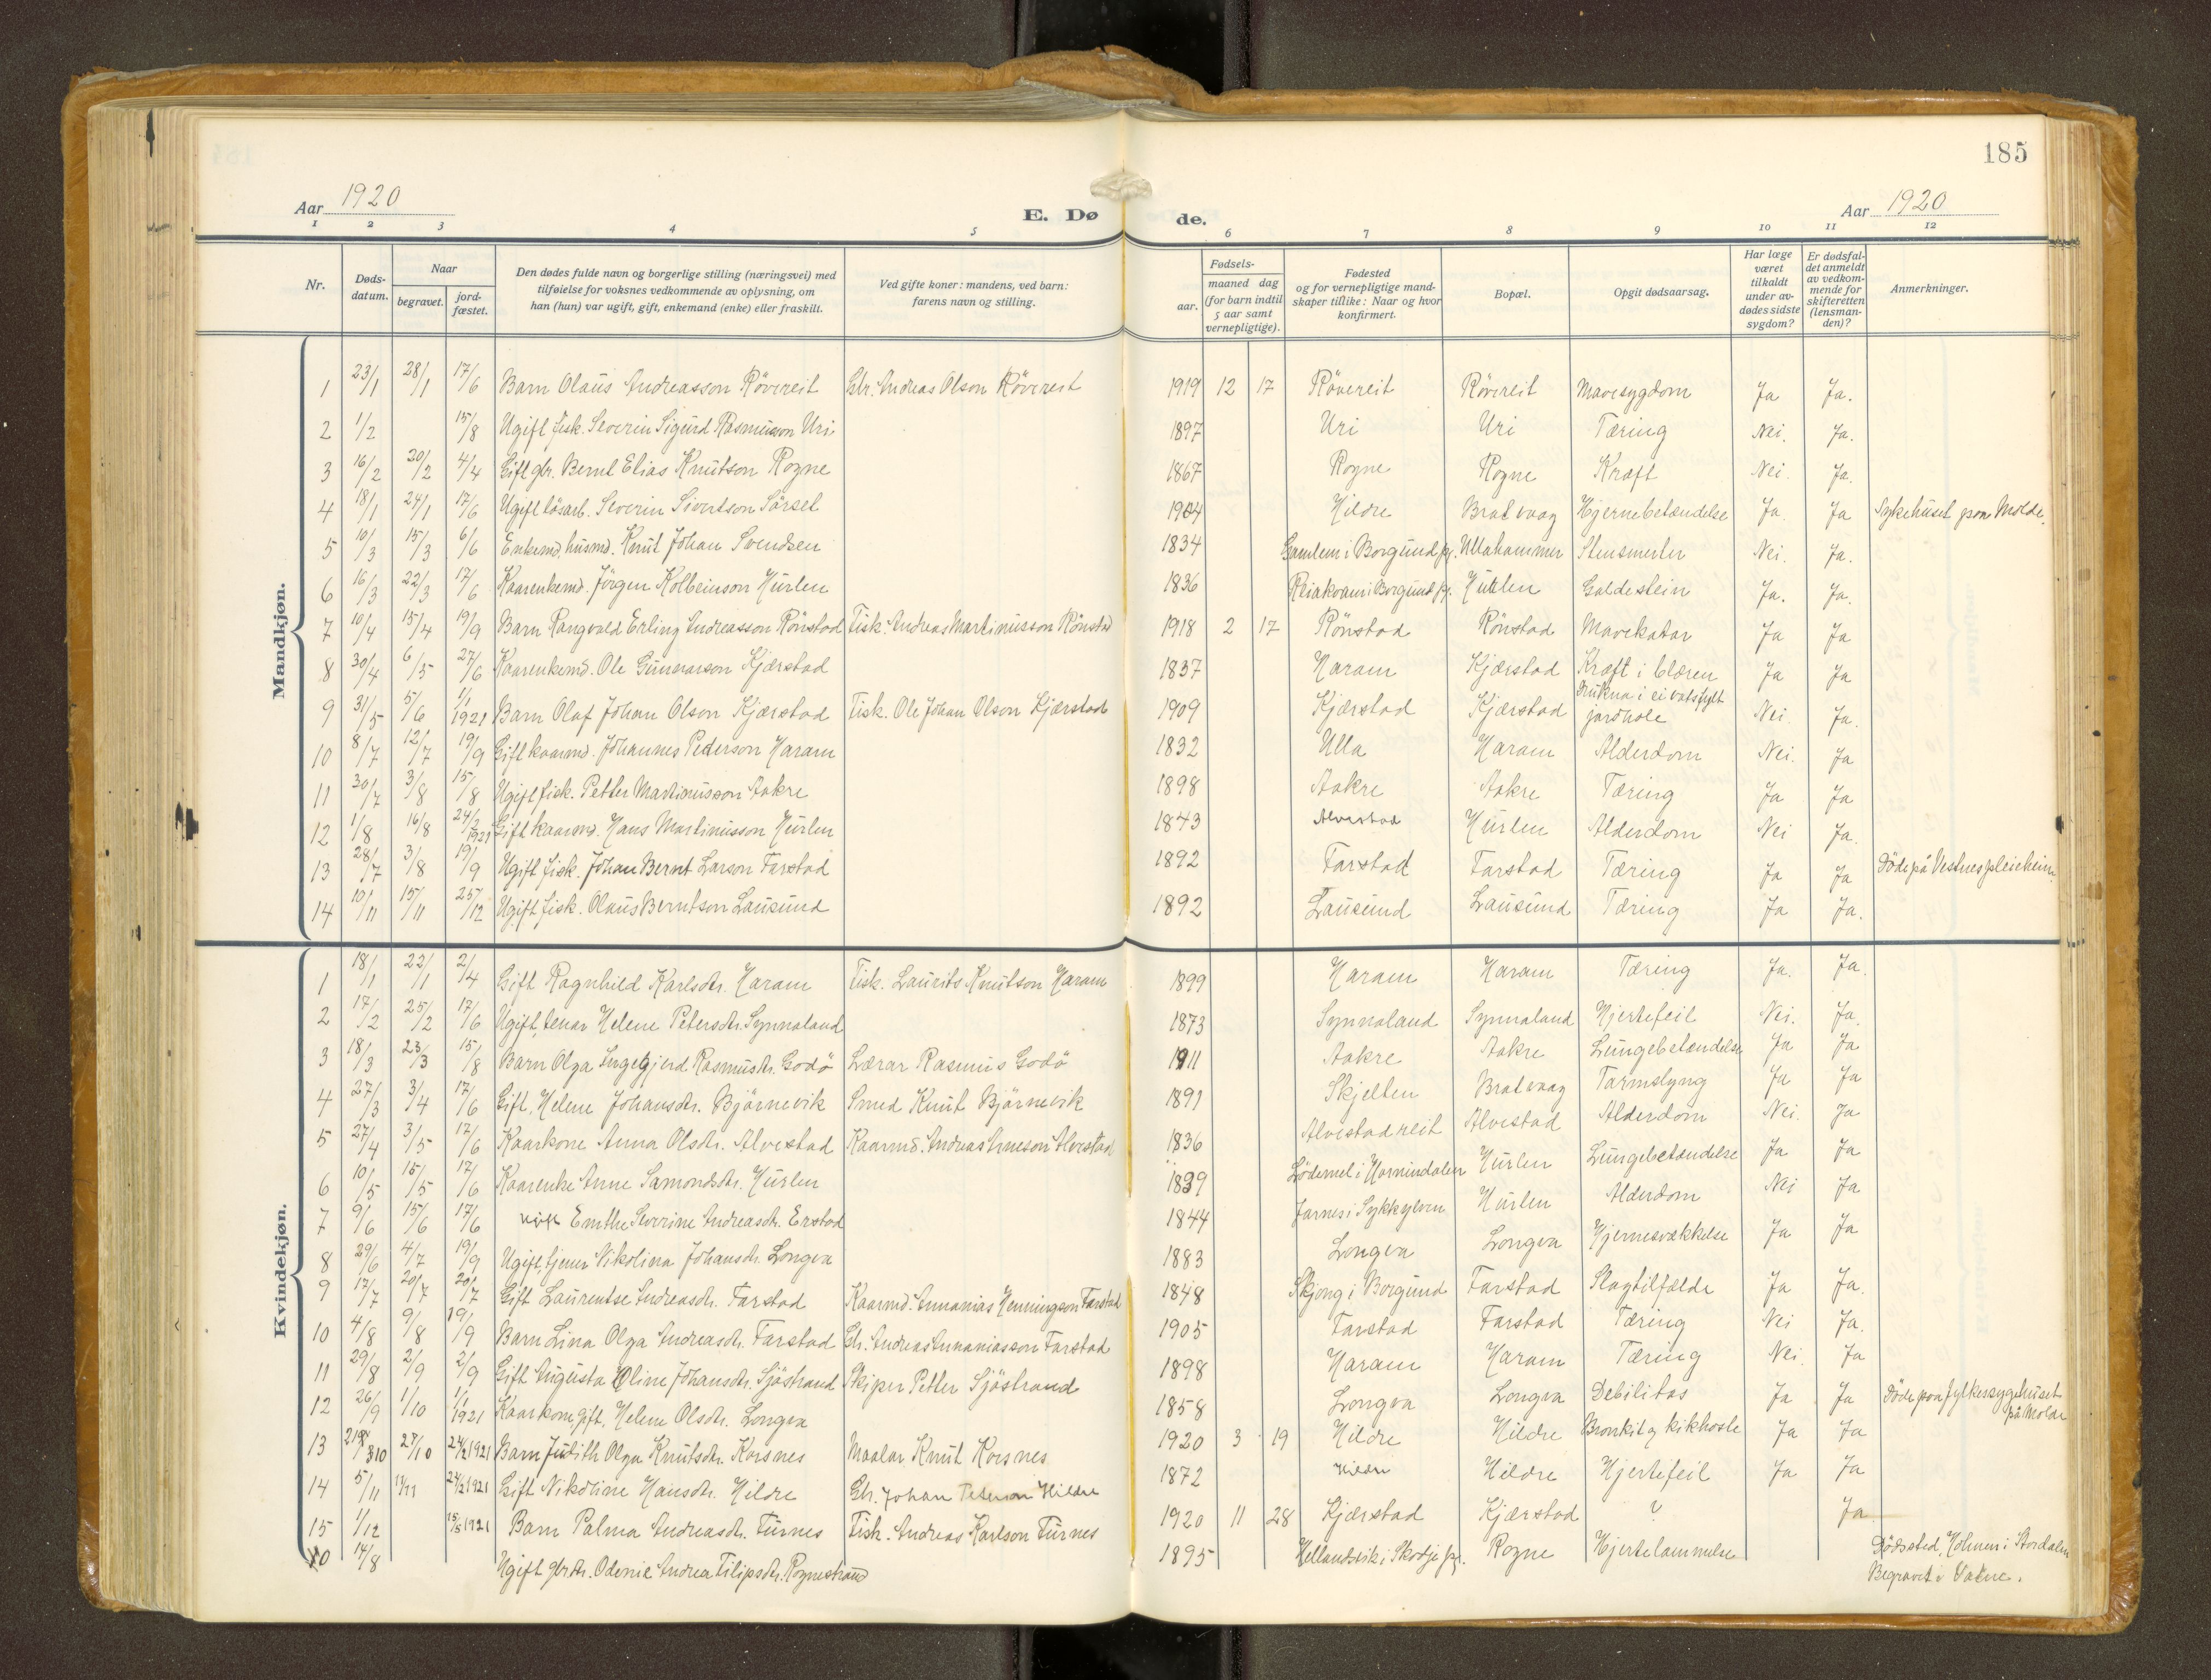 185
Aar 1920
E. Døde.
Aar 1920
1 2 3 4 5 6 7 8 9 10 11 12
Nr.
Døds-datum.
Naar
begravet.
jord-fæstet.
Den dødes fulde navn og borgerlige stilling (næringsvei) med
tilføielse for voksnes vedkommende av oplysning, om
han (hun) var ugift, gift, enkemand (enke) eller fraskilt.
Ved gifte koner: mandens, ved barn:
farens navn og stilling.
Fødsels-
aar.
maaned dag
(for barn indtil
5 aar samt
vernepligtige).
Fødested
og for vernepligtige mand-
skaper tillike: Naar og hvor
konfirmert.
Bopæl.
Opgit dødsaarsag.
Har læge
været
tilkaldt
under av-
dødes sidste
sygdom?
Er dødsfal-
det anmeldt
av vedkom-
mende for
skifteretten
(lensman-
den)?
Anmerkninger.
Mandkjøn.
1 23/1 28/1 17/6 Barn Olaus Andreasson Rövereit Gbr. Andreas Olson Rövereit 1919 12 17 Rövereit Rövereit Mavesygdom Ja Ja.
2 1/2 15/8 Ugift fisk. Severin Sigurd Rasmusson Uri 1897 Uri Uri Tæring Nei. Ja.
3 16/2 20/2 4/4 Gift gbr. Bernt Elias Knutson Rogne 1867 Rogne Rogne Kræft Nei. Ja.
4 18/1 24/1 17/6 Ugift lösarb. Severin Sivertson Sörset 1904 Hildre Bratvaag Hjernebetændelse Ja Ja Sykehuset paa Molde.
5 10/3 15/3 6/6 Enkemd. husmd. Knut Johan Svendsen 1834 Gamlem i Borgund pg. Ullahammer Stensmerter Nei. Ja.
6 16/3 22/3 17/6 Kaarenkemd. Jörgen Kolbeinson Hurlen 1836 Reiakvam i Borgund pg. Hurlen Galdestein Ja. Ja.
7 10/4 15/4 19/9 Barn Rangvald Erling Andreasson Rönstad Fisk. Andreas Martinusson Rönstad 1918 2 17 Rönstad Rönstad Mavekatar Ja Ja
8 30/4 6/5 27/6 Kaarenkemd. Ole Gunnarson Kjærstad 1837 Haram Kjærstad Kræft i blæren Ja Ja
9 31/5 5/6 1/1 1921 Barn Olaf Johan Olson Kjærstad Fisk. Ole Johan Olson Kjærstad 1909 Kjærstad Kjærstad Drukna i ei vatsfylt jordhole Nei. Ja.
10 8/7 12/7 19/9 Gift kaarmd. Johannes Pederson Haram 1832 Ulla Haram Alderdom Nei. Ja
11 30/7 3/8 15/8 Ugift fisk. Petter Martinusson Aakre 1898 Aakre Aakre Tæring Ja Ja
12 1/8 16/8 24/2 1921 Gift kaarmd. Hans Martinusson Hurlen 1843 Alvestad Hurlen Alderdom Nei Ja.
13 28/7 3/8 19/9 Ugift fisk. Johan Bernt Larson Farstad 1892 Farstad Farstad Tæring Ja Ja Döde på Vestnes pleieheim
14 10/11 15/11 25/12 Ugift fisk. Olaus Berntson Lausund 1892 Lausund Lausund Tæring Ja Ja.
Kvindekjøn.
1 18/1 22/1 2/4 Gift Ragnhild Karlsdtr. Haram Fisk. Laurits Knutson Haram 1899 Haram Haram Tæring Ja. Ja.
2 17/2 25/2 17/6 Ugift tenar Helene Petersdtr. Synnaland 1873 Synnaland Synnaland Hjertefeil Nei. Ja.
3 18/3 23/3 15/8 Barn Olga Ingegjerd Rasmusdtr. Godö Lærar Rasmus Godö 1911 Aakre Aakre Lungebetændelse Ja Ja
4 27/3 3/4 17/6 Gift. Helene Johansdtr. Björnevik Smed Knut Björnevik 1891 Skjelten Bratvaag Tarmslyng Ja Ja
5 27/4 3/5 17/6 Kaarkone Anna Olsdtr. Alvestad Kaarmd. Andreas Arneson Alvestad 1836 Alvestadreit Alvestad Alderdom Nei. Ja
6 10/5 15/5 17/6 Kaarenke Anne Samondsdtr. Hurlen 1839 Lödemel i Hornindalen Hurlen Lungebetændelse Ja Ja
7 9/6 15/6 17/6 Emthe Severine Andreasdtr. Erstad 1844 Jarnes i Sykkylven Hurlen Alderdom Nei Ja
8 29/6 4/7 19/9 Ugift tjener Nikolina Johansdtr. Longva 1883 Longva Longva Hjernesvækkelse Ja Ja
9 17/7 20/7 20/7 Gift Laurentse Andreasdtr. Farstad Kaarmd. Annanias Henningson Farstad 1848 Skjong i Borgund Farstad Slagtilfælde Ja Ja.
10 4/8 9/8 19/9 Barn Lina Olga Andreasdtr. Farstad Gbr. Andreas Annaniasson Farstad 1905 Farstad Farstad Tæring Nei Ja.
11 29/8 2/9 2/9 Gift Augusta Oline Johansdtr. Sjöstrand Skiper Petter Sjöstrand 1898 Haram Haram Tæring Nei. Ja
12 26/9 1/10 1/1 1921 Kaarkone gift. Helene Olsdtr. Longva 1858 Longva Longva Debilitas Ja Ja Döde paa fylkessygehuset på Molde
13 27/10 24/2 1921 Barn Judith Olga Knutsdtr. Korsnes Maalar Knut Korsnes 1920 3 19 Hildre Hildre Bronkit og kikhoste Ja Ja
14 5/11 11/11 24/2 1921 Gift Nikoline Hansdtr. Hildre Gbr. Johan Peterson Hildre 1872 Hildre Hildre Hjertefeil Ja Ja
15 1/12 15/5 1921 Barn Palma Andreasdtr. Furnes Fisk. Andreas Karlson Furnes 1920 11 28 Kjærstad Kjærstad ? Ja
10 14/8 Ugift gbrdtr. Odenie Andrea Filipsdtr. Rognestrand 1895 Hellandsvik i Skodje pg. Rogne Hjertelammelse Dödssted, Holmen i Stordalen
Begravet i Vatne.